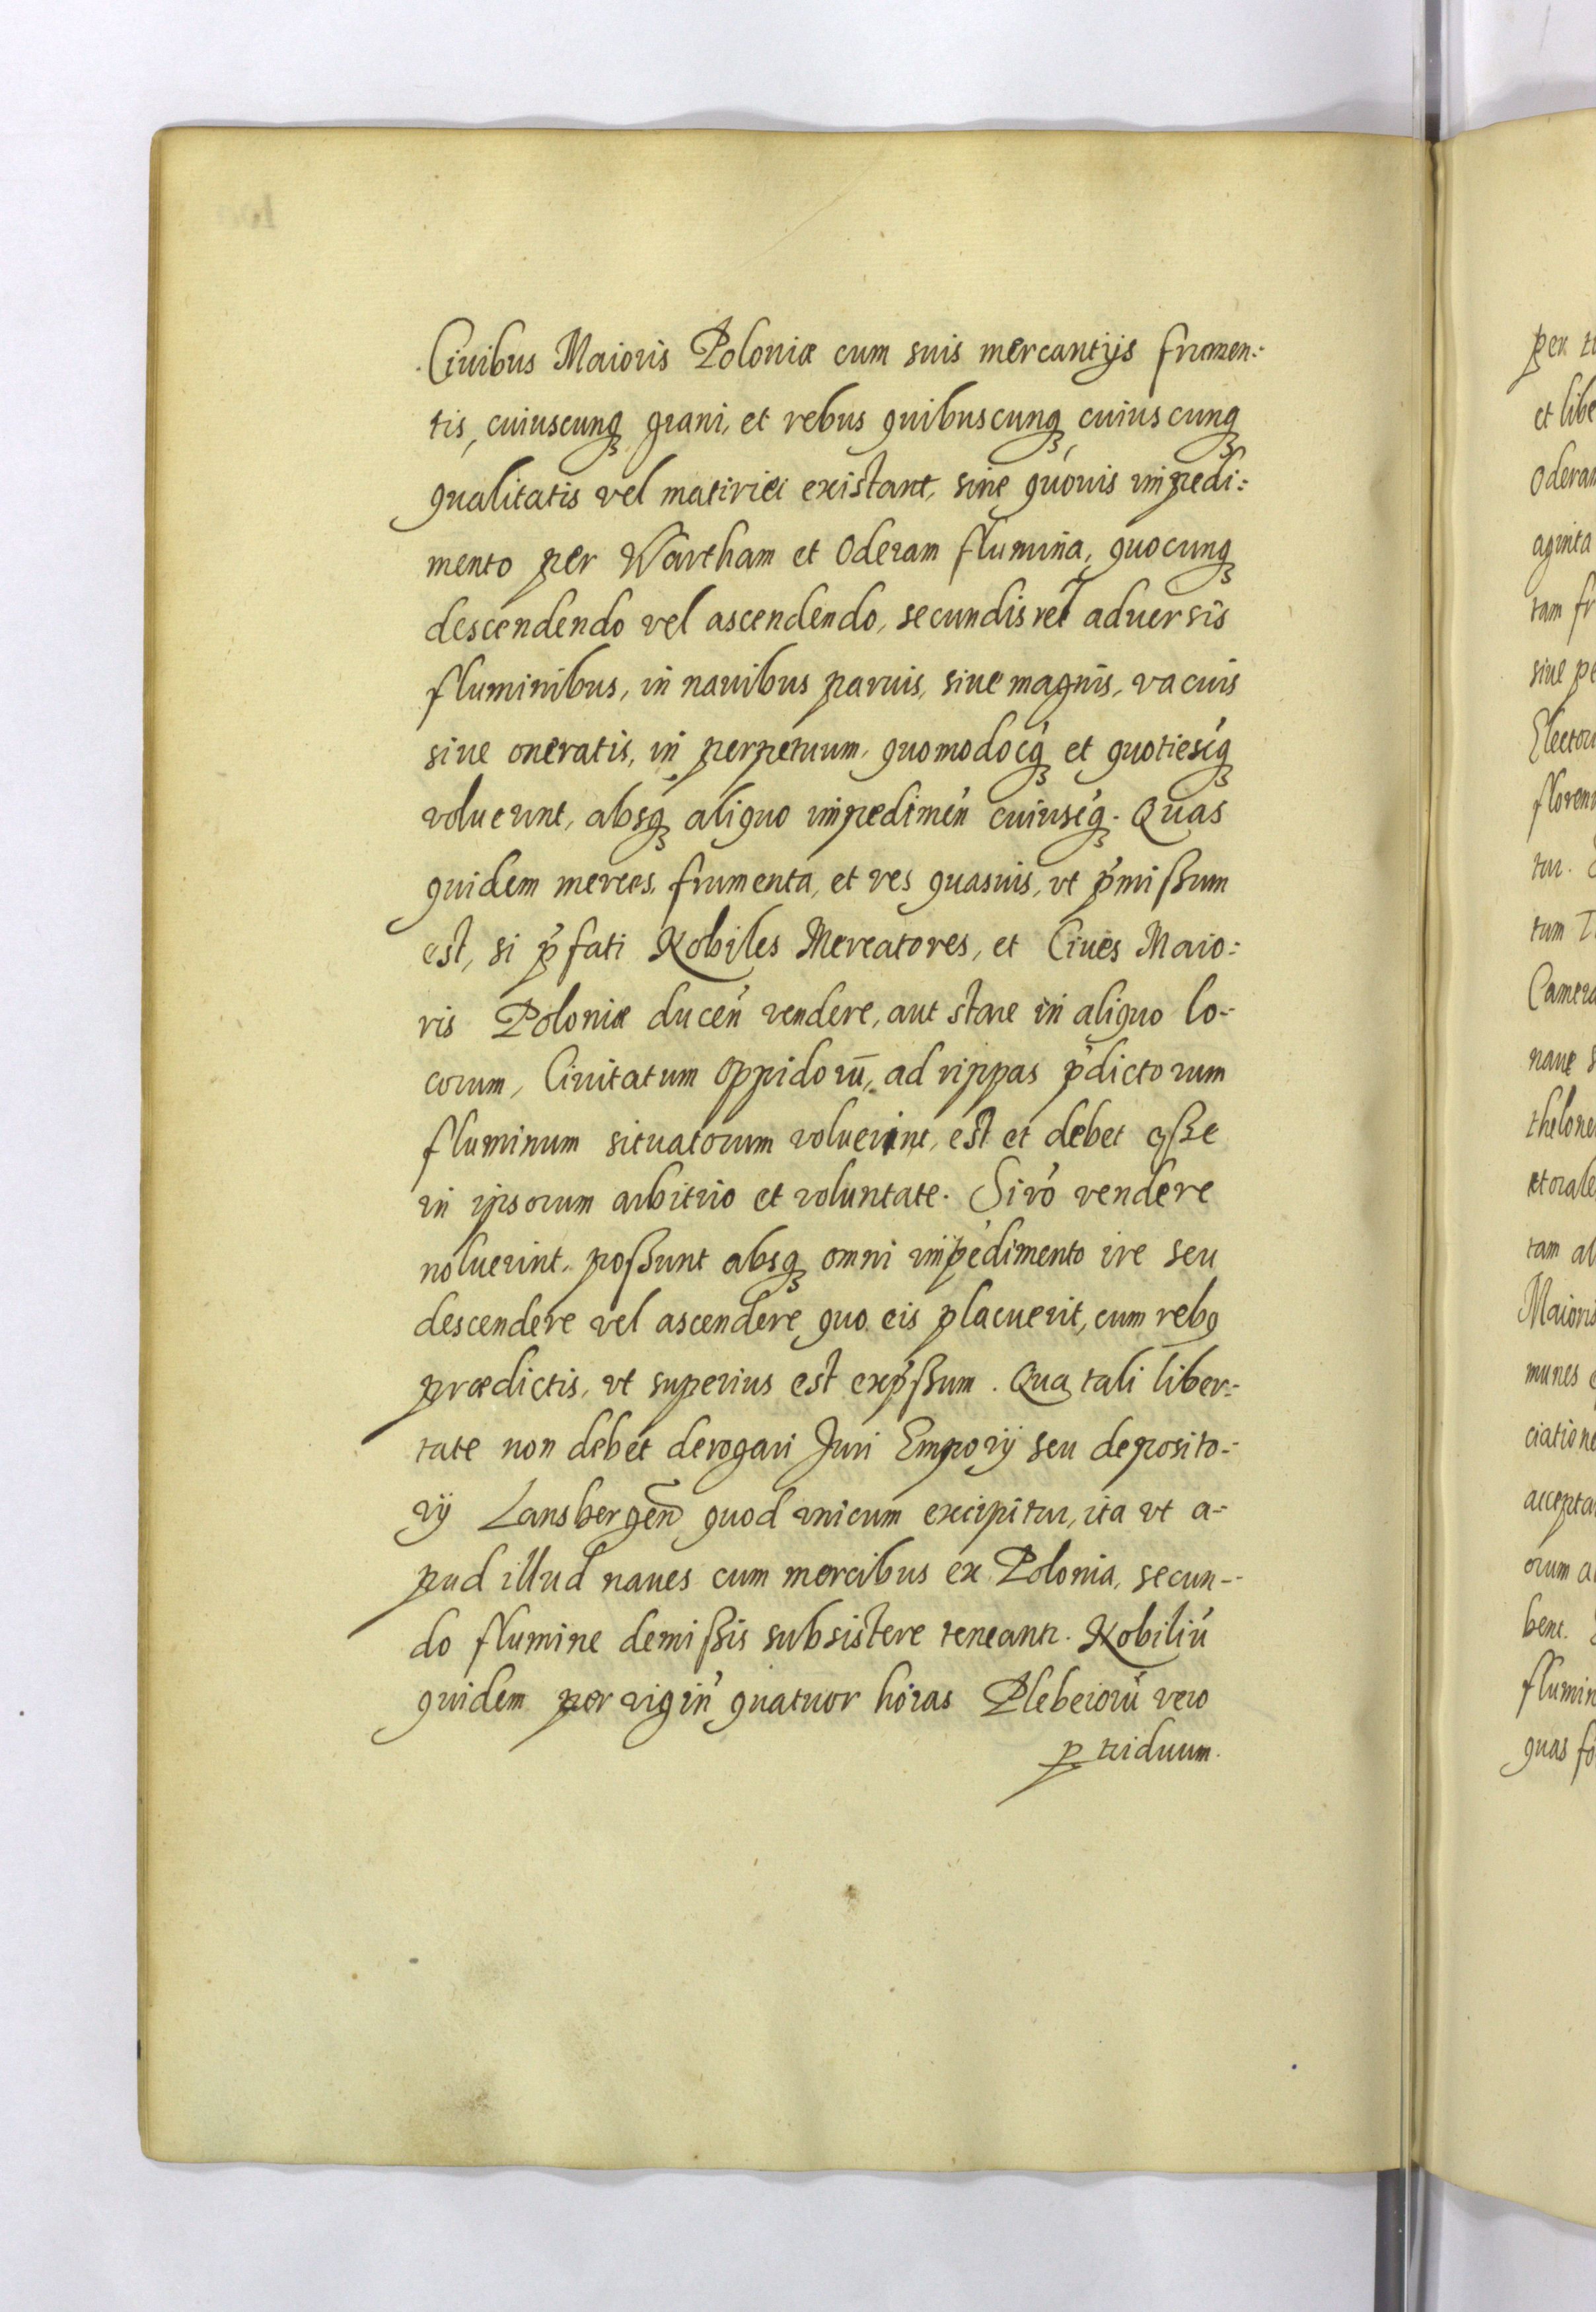 Ciuibus Maioris Poloniæ cum suis mercantijs frumen:
tis, cuiuscunqꝫ grani, et rebus quibuscunqꝫ cuiuscunqꝫ
qualitatis vel materiei existant, sine quouis impedi:
mento per Wartham et Oderam flumina, quocunqꝫ
descendendo vel ascendendo, secundis vel aduersis
fluminibus, in nauibus paruis, siue magnis, vacuis
siue oneratis, in perpetuum, quomodocqꝫ et quotiescqꝫ
voluerint, absqꝫ aliquo impedimen̄ cuiuscqꝫ. Quas
quidem merces, frumenta, et res quasuis, vt p̄missum
est, si p̄fati Nobiles Mercatores, et Ciues Maio:
ris Poloniæ ducen̄ vendere, aut stare in aliquo lo-
corum, Ciuitatum Oppidorū, ad rippas p̄dictorum
fluminum situatorum voluerint, est et debet esse
in ipsorum arbitrio et voluntate. Si vō vendere
noluerint, possunt absqꝫ omni impedimento ire seu
descendere vel ascendere quo eis placuerit, cum rebꝰ
prædictis, vt superius est exp̄ssum. Qua tali liber-
tate non debet derogari Juri Emporij seu deposito-
rij Lansbergen̄ quod vnicum excipitur, ita vt a-
pud illud naues cum mercibus ex Polonia, secun-
do flumine demissis subsistere teneantr. Nobiliū
quidem per vigin̄ quatuor horas Plebeiorū vero
ꝑ triduum.
per
et libe
Oderam
aginta
tam fr
siue pe
Elector
floren
tur.
tum
Camera
naue s
thelone
ctorale
tam ab
Maioris
munes
ciatione
accepta
orum a
bent.
flumin
quas fo